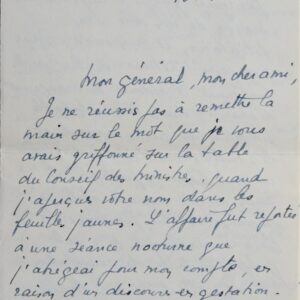 Mon général, mon cher ami,
Je ne réussis pas à remettre la
main sur le mot que je vous
avais griffonné sur la table
du Conseil des ministres, quand
j'aperçus votre nom dans les
feuilles jaunes. L'affaire fut reportée
à une séance nocturne que
j'abrégeai pour mon compte, en
raison d'un discours en gestation.